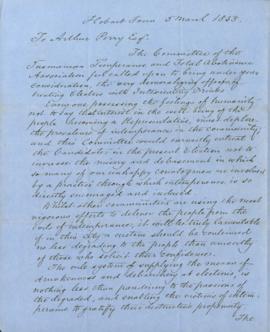 Hobart Town 5 March 1853
To Arthur Perry Esq.
The Committee of the
Tasmanian Temperance and Total Abstinence
Association feel called upon to bring under your
consideration, the very demoralizing effects of
treating Electors with Intoxicating Drinks
Every one possessing the feelings of humanity
not to say that interest in the well being of the
people becoming a Representative, must deplore
the prevalence of intemperance in the community
and this Committee would earnestly entreat
the Candidates in the present Election not to
increase the misery and debasement in which
so many of our unhappy countrymen are involved
by a practice through which intemperance is so
directly encouraged and induced
Whilst other communities are using the most
vigorous efforts to deliver the people from the
Curse of intemperance, it will be truly lamentable
if in this City a custom should be continued
no less degrading to the people than unworthy
of those who solicit their confidence.
The one system of supplying the means of
drunkenness and debauchery at elections, is
nothing less than pandering to the passions of
the degraded, and enabling the victims of intem-
perance to gratify their destructive propensity
The